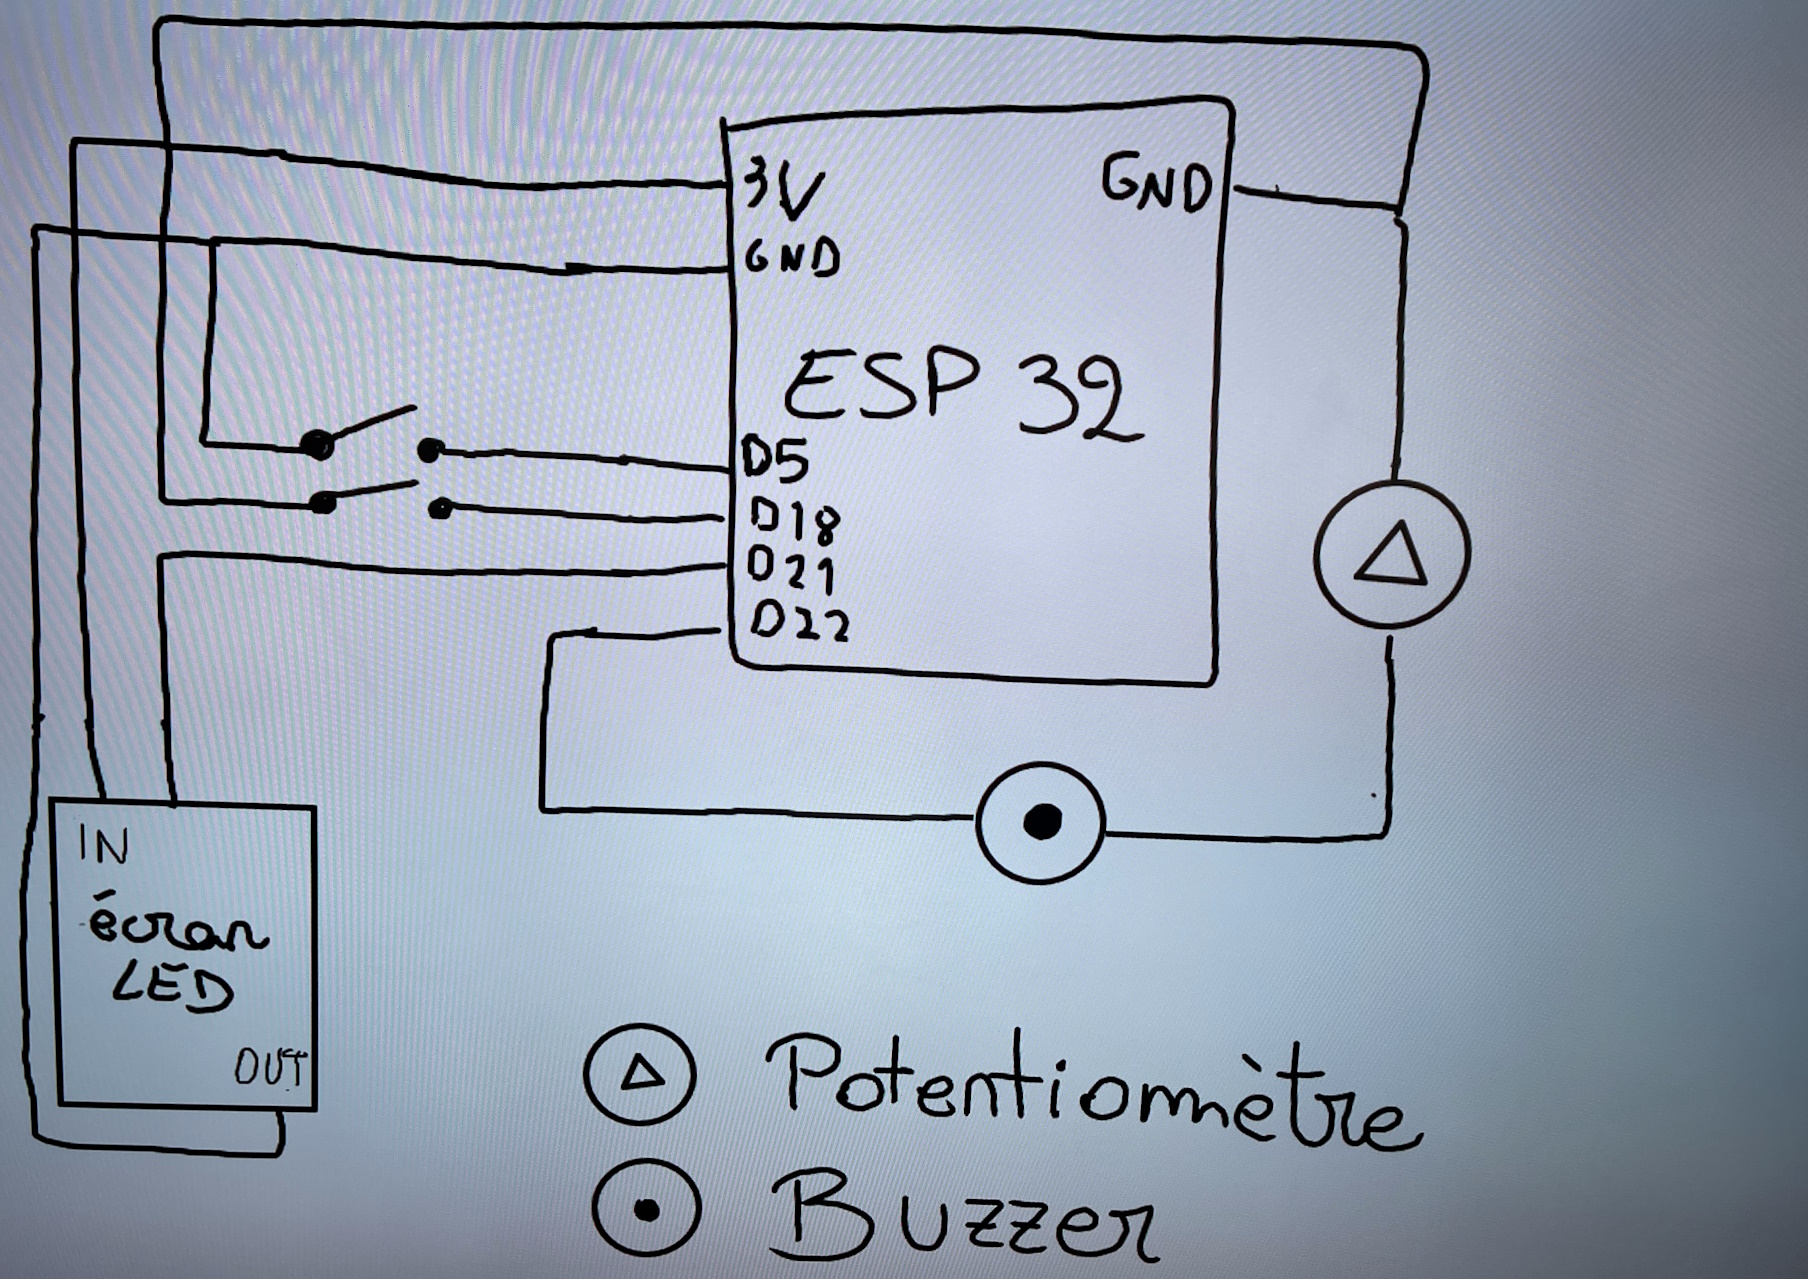 3V
GND
GND
ESP 32
D5
D18
D21
D22
IN
écran
LED
OUT
Potentiomètre
Buzzer